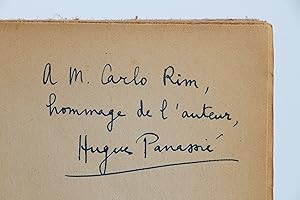 A M. Carlo Rim,
hommage de l'auteur,
Hugues Panassié